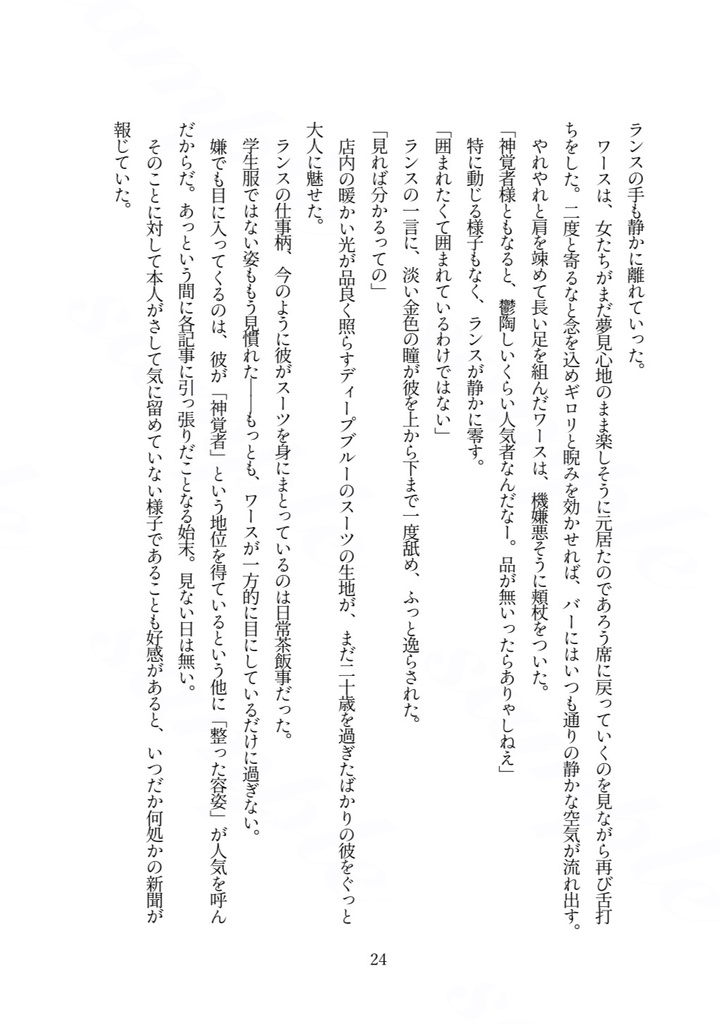 ランスの手も静かに離れていった。
ワースは、女たちがまだ夢見心地のまま楽しそうに元居たのであろう席に戻っていくのを見ながら再び舌打
ちをした。二度と寄るなと念を込めギロリと睨みを効かせれば、バーにはいつも通りの静かな空気が流れ出す。
やれやれと肩を竦めて長い足を組んだワースは、機嫌悪そうに頬杖をついた。
「神覚者様ともなると、鬱陶しいくらい人気者なんだなー。品が無いったらありゃしねえ」
特に動じる様子もなく、ランスが静かに零す。
「囲まれたくて囲まれているわけではない」
ランスの一言に、淡い金色の瞳が彼を上から下まで一度舐め、ふっと逸らされた。
「見れば分かるっての」
店内の暖かい光が品良く照らすディープブルーのスーツの生地が、まだ二十歳を過ぎたばかりの彼をぐっと
大人に魅せた。
ランスの仕事柄、今のように彼がスーツを身にまとっているのは日常茶飯事だった。
学生服ではない姿ももう見慣れた――もっとも、ワースが一方的に目にしているだけに過ぎない。
嫌でも目に入ってくるのは、彼が「神覚者」という地位を得ているという他に「整った容姿」が人気を呼ん
だからだ。あっという間に各記事に引っ張りだことなる始末。見ない日は無い。
そのことに対して本人がさして気に留めていない様子であることも好感があると、いつだか何処かの新聞が
報じていた。
24